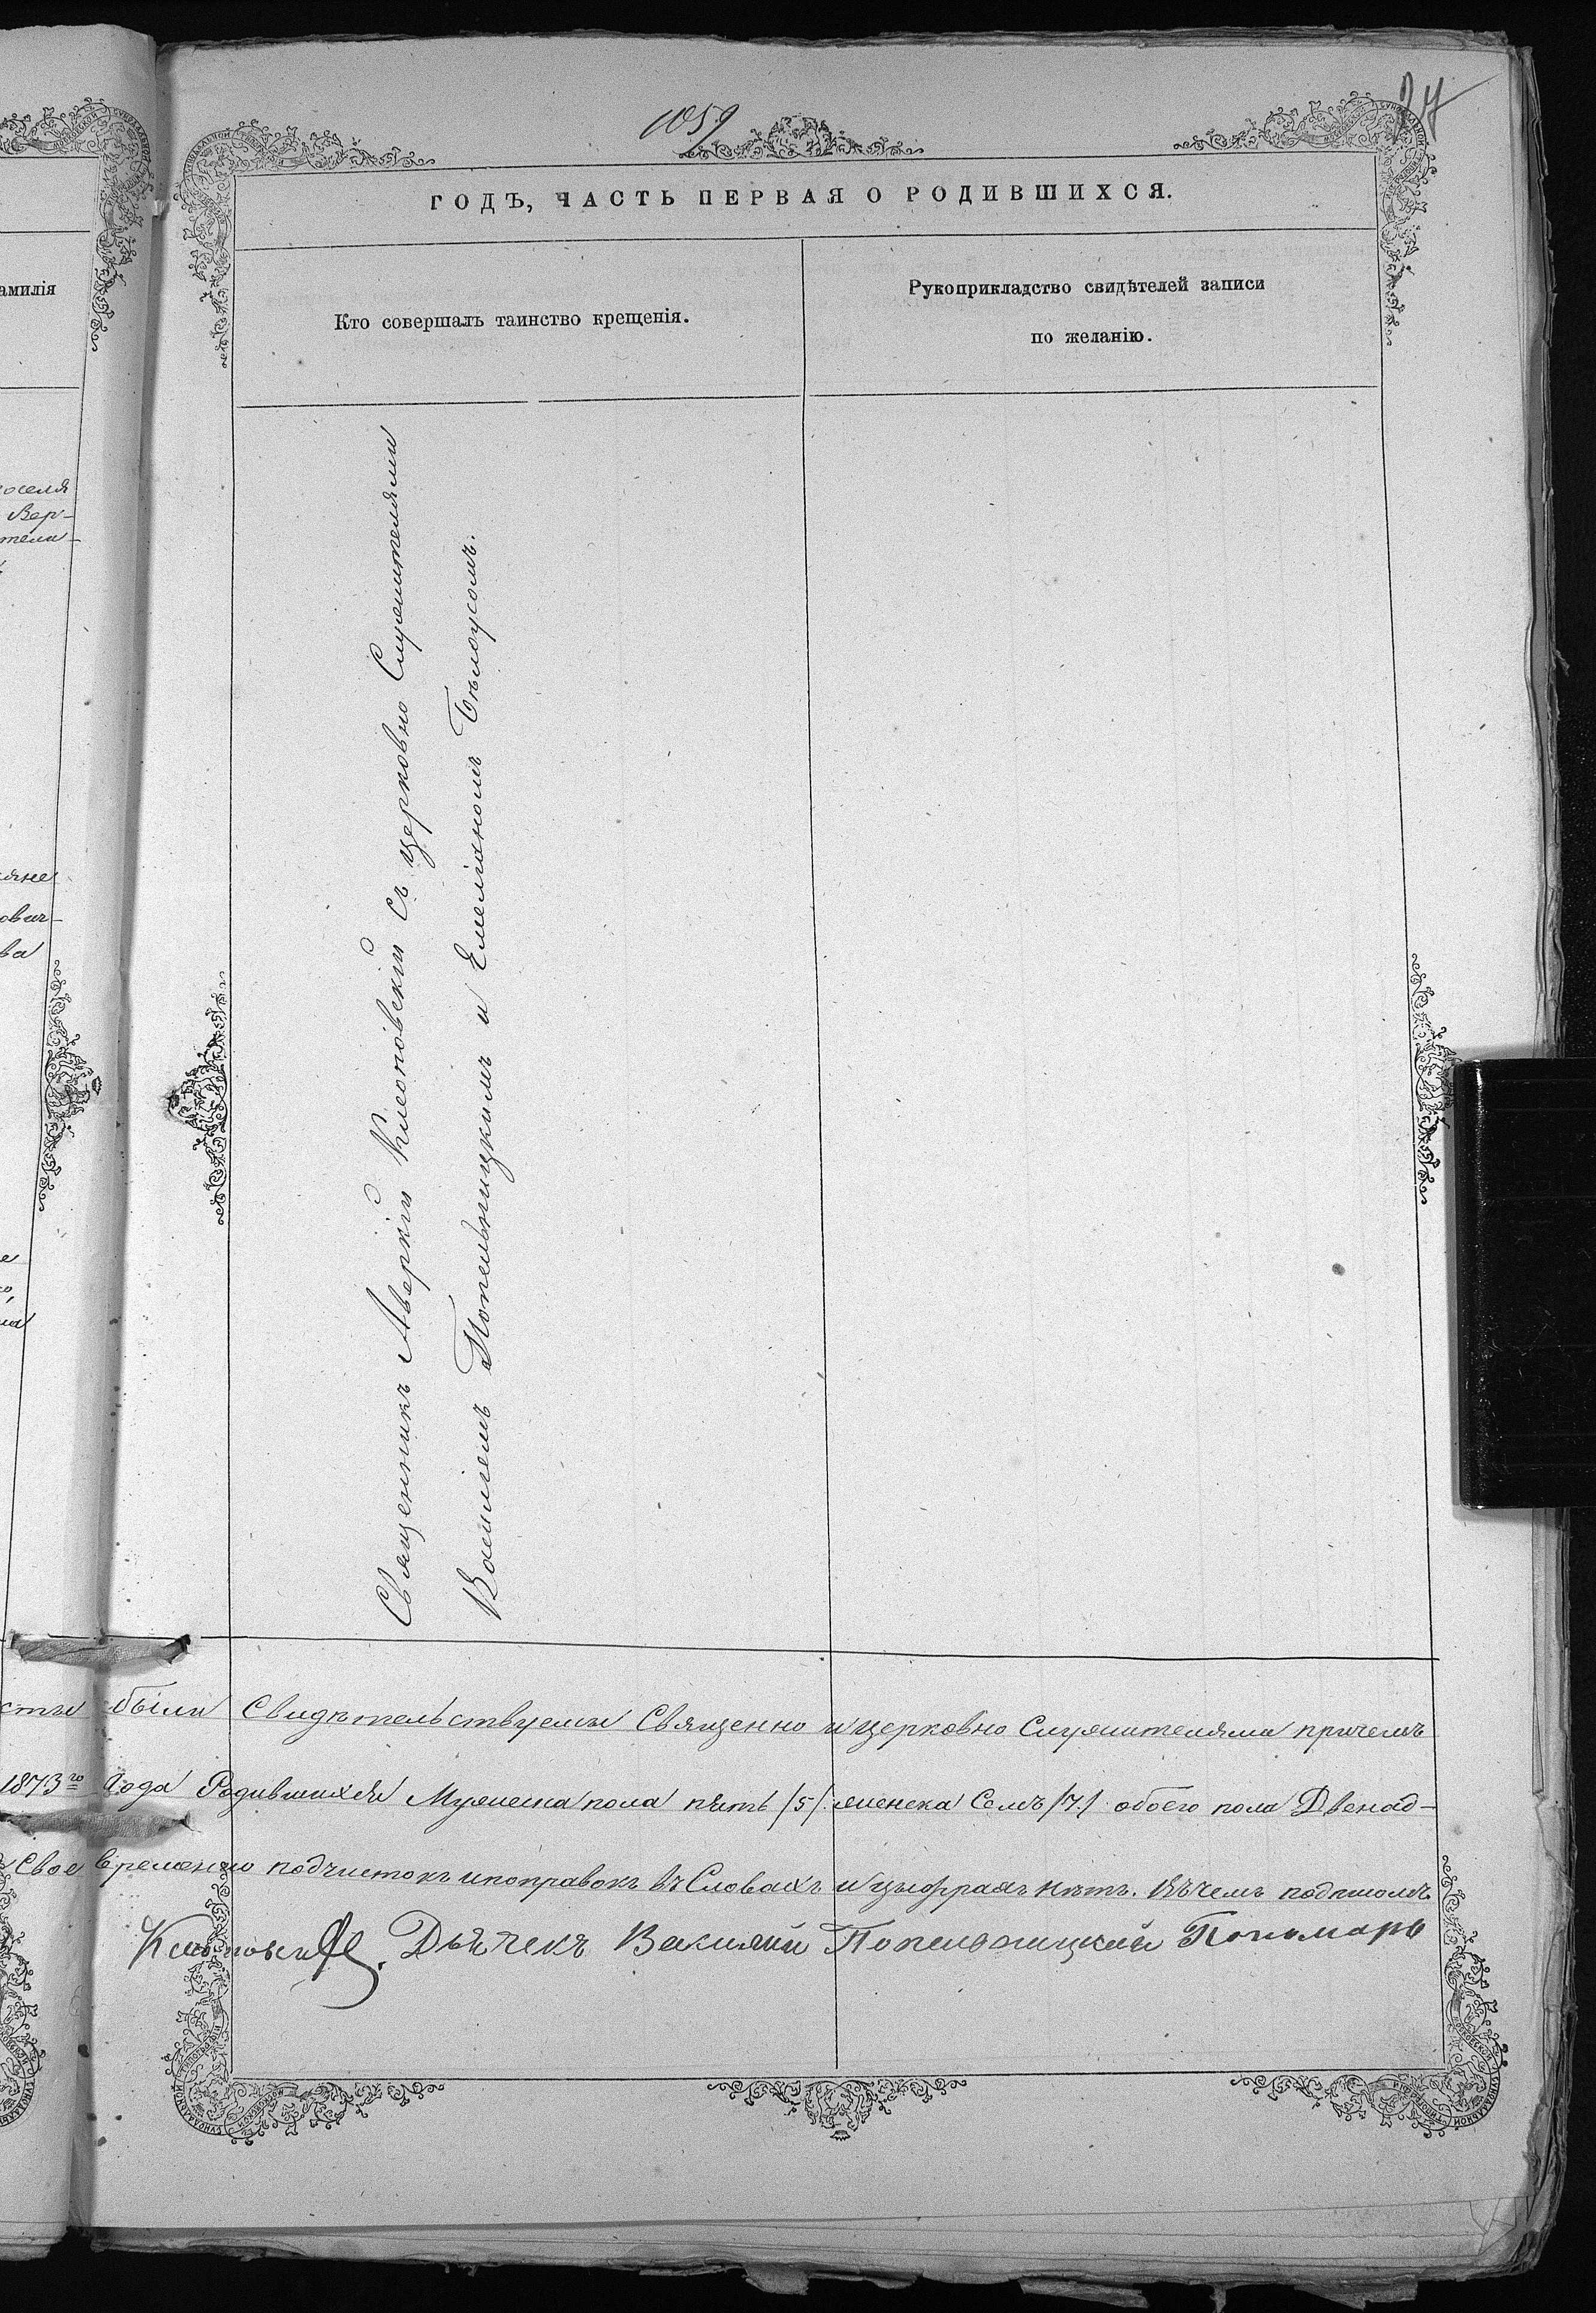 1059
24
ГОДЪ, ЧАСТЬ ПЕРВАЯ О РОДИВШИХСЯ.
амилія
Кто совершалъ таинство крещенія.
Рукоприкладство свидѣтелей записи
по желанію.
Вер-
яне
ва
Священникъ Аверкій Клеповскій Съ церковно Служителями
Василіемъ Попельницкимъ и Емеліаномъ Бѣлоусомъ.
были Свидѣтельствуемы Священно и церковно Служителями причемъ
1873го Года Родившихся Мужеска пола пять /5/ женска Семъ /7/ обоего пола Двенад-
Свое временно подчистокъ ипоправокъ въ Словахъ и цыфрахъ нѣтъ. Въ чемъ подписомъ
Дьячекъ Василий Попельницкий Пономарь